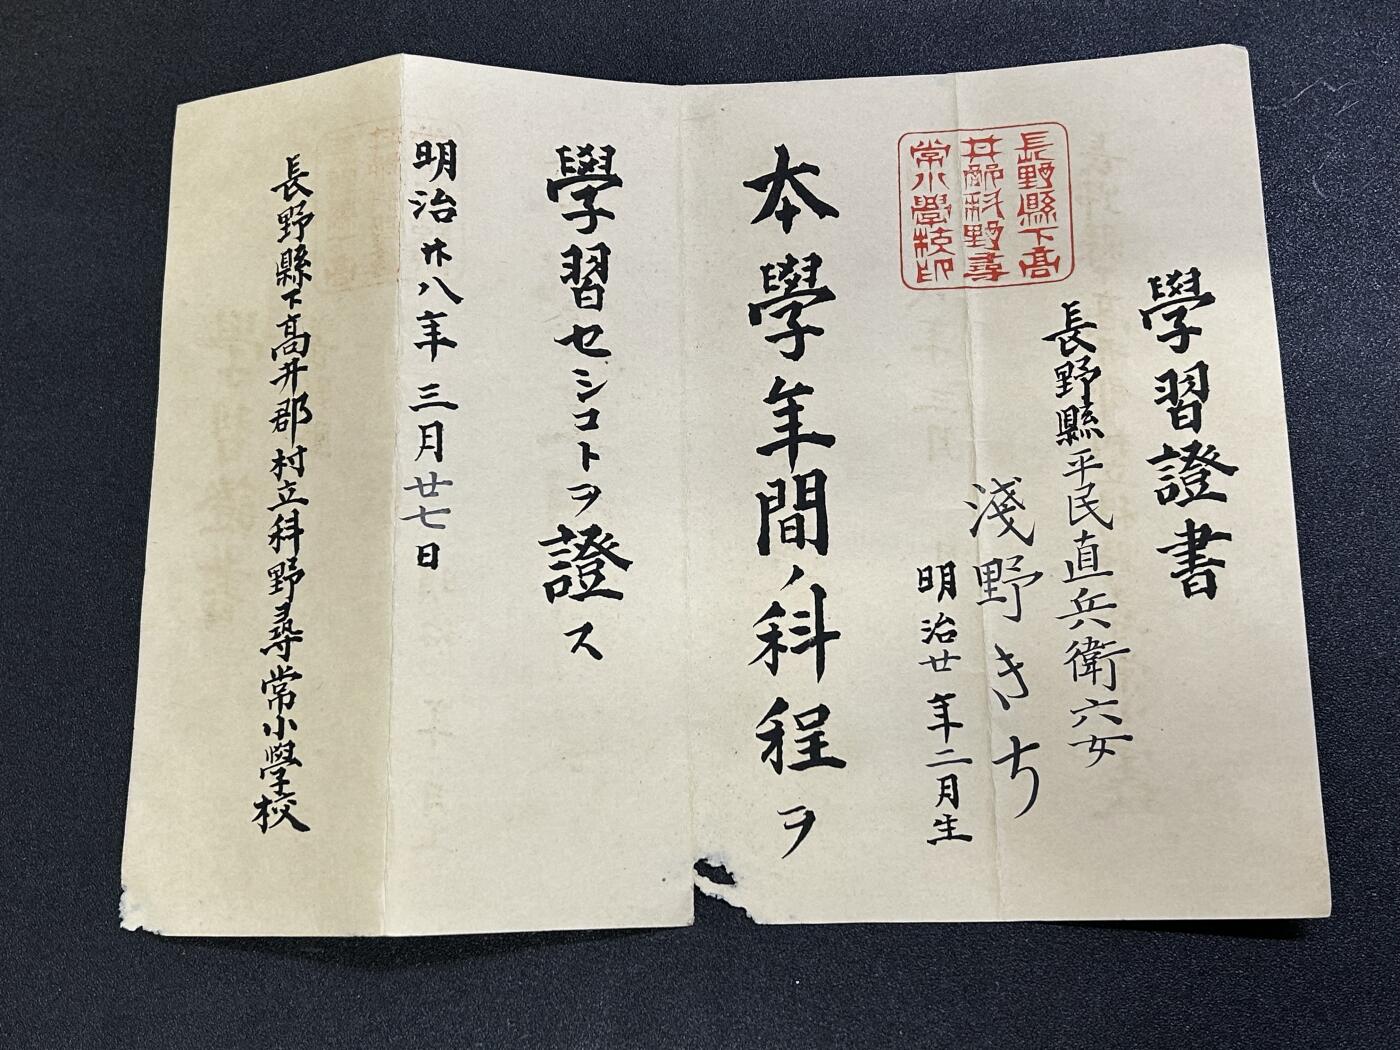 學習證書
長野縣平民直兵衛六女
淺野きち
明治廿年二月生
長野縣下髙
井郡科野尋
常小學校印
本學年間ノ科程ヲ
學習セシコトヲ證ス
明治廿八年三月廿七日
長野縣下高井郡村立科野尋常小學校